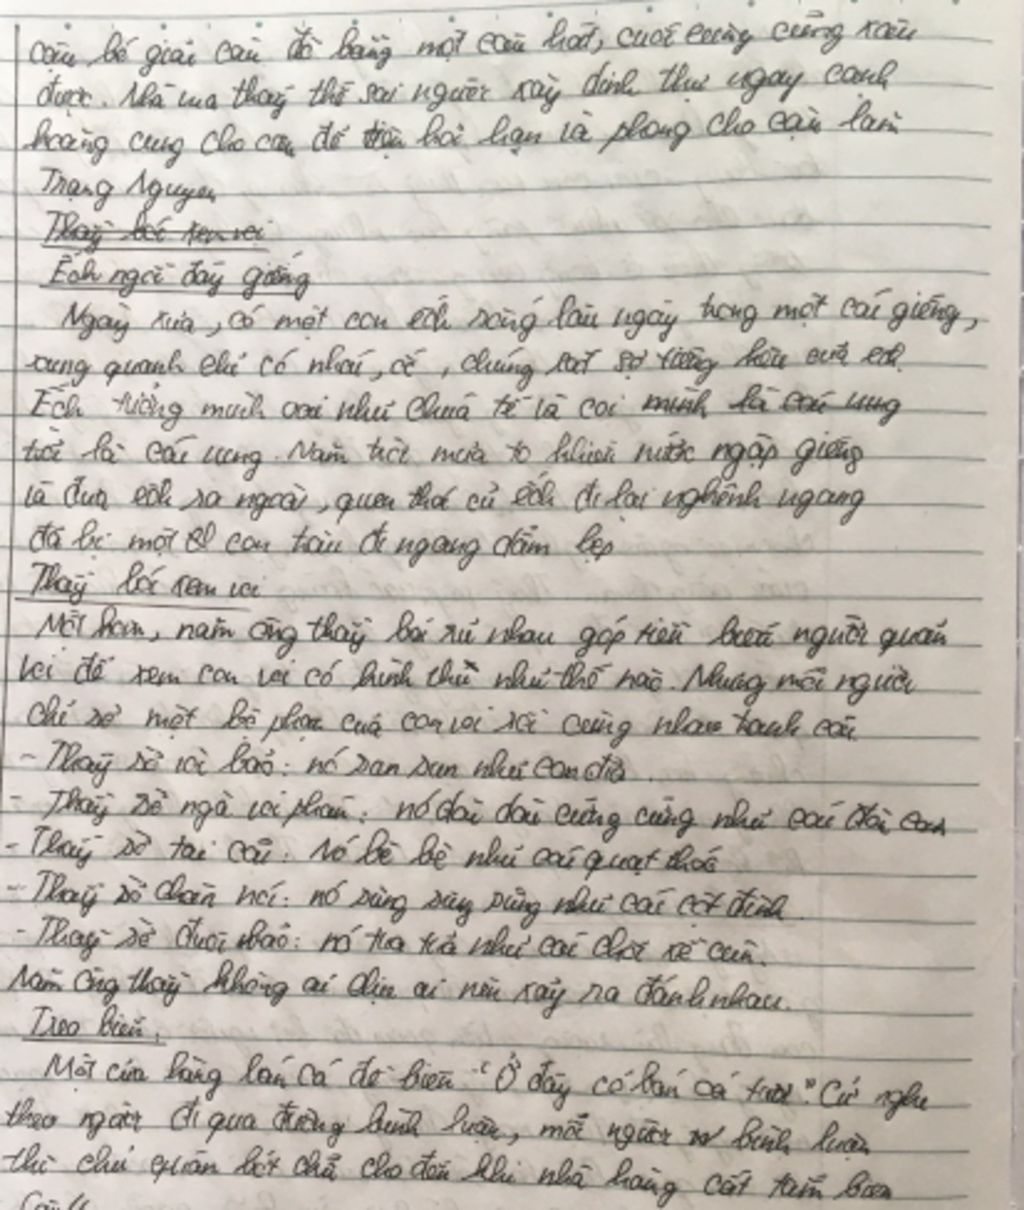 cậu bé giải câu đố bằng một câu hát, cuối cùng cũng xâu
được. Nhà vua thấy thế sai người xây dinh thự ngay cạnh
hoàng cung cho cậu để tiện hỏi han và phong cho cậu làm
Trạng Nguyên
Thầy bói xem voi
Ếch ngồi đáy giếng
Ngày xưa, có một con ếch sống lâu ngày trong một cái giếng,
xung quanh chỉ có nhái, ốc, chúng rất sợ tiếng kêu của ếch.
Ếch tưởng mình oai như chúa tể và coi mình là cái vung
trời là cái vung. Năm trời mưa to khiến nước ngập giếng
và đưa ếch ra ngoài, quen thói cũ ếch đi lại nghênh ngang
đã bị một con trâu đi ngang dẫm bẹp
Thầy bói xem voi
Một hôm, năm ông thầy bói rủ nhau góp tiền biếu người quản
voi để xem con voi có hình thù như thế nào. Nhưng mỗi người
chỉ sờ một bộ phận của con voi rồi cùng nhau tranh cãi
- Thầy sờ vòi bảo: nó sun sun như con đỉa.
- Thầy sờ ngà voi phán: nó dài dài cứng cứng như cái đòn càn
- Thầy sờ tai cãi: Nó bè bè như cái quạt thóc
- Thầy sờ chân nói: nó sừng sững như cái cột đình.
- Thầy sờ đuôi bảo: nó tua tủa như cái chổi xể cùn.
Năm ông thầy không ai chịu ai nên xảy ra đánh nhau.
Treo biển.
Một cửa hàng bán cá đề biển "Ở đây có bán cá tươi". Cứ nghe
theo người đi qua đường bình luận, mỗi người bình luận
thì chủ quán bớt chữ cho đến khi nhà hàng cất tấm biển